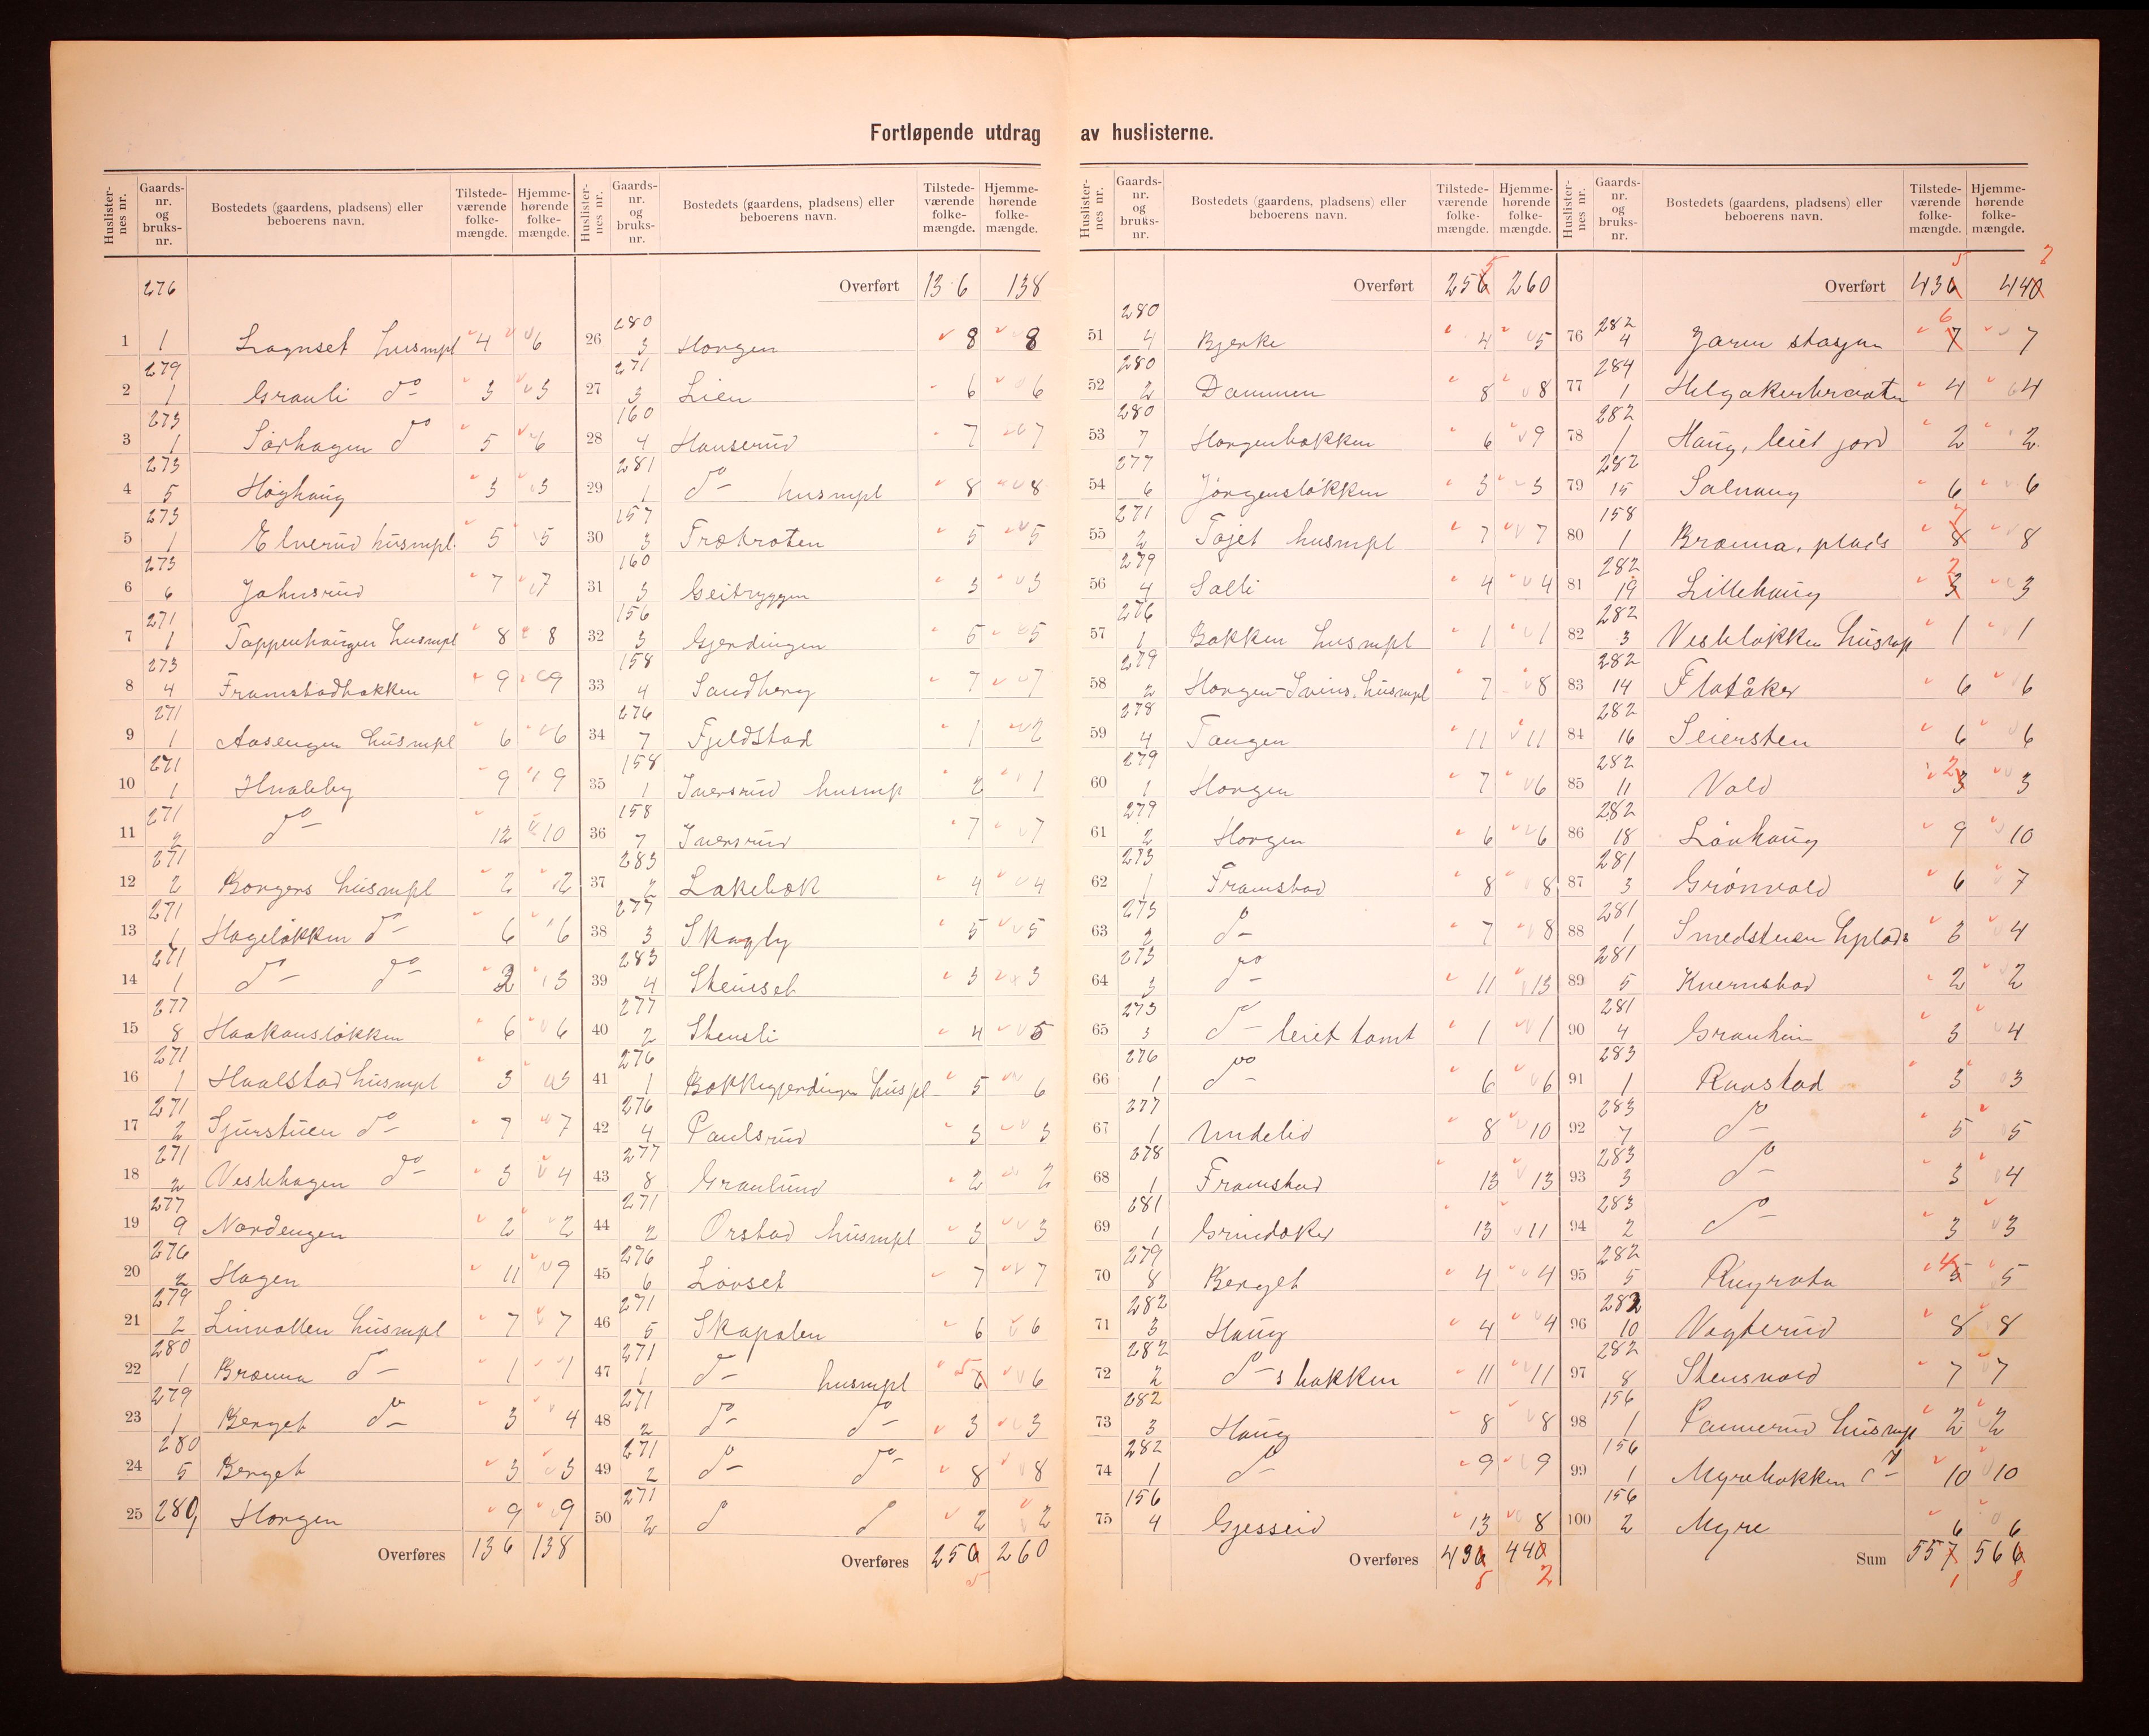 Fortløpende utdrag av huslisterne.
Huslisternes nr. Gaards-nr. og bruks-nr. Bostedets (gaardens, pladsens) eller beboerens navn. Tilstedeværende folkemængde. Hjemmehørende folkemængde.
276
1 1 Lognset husmpl 4 6
2 279 1 Granli do 3 3
3 273 1 Sørhagen do 5 6
4 273 5 Høghaug 3 3
5 273 1 Elverud husmpl. 5 5
6 273 6 Johnsrud 7 7
7 271 1 Toppenhaugen husmpl 8 8
8 273 4 Framstadbakken 9 9
9 271 1 Aasengen husmpl 6 6
10 271 1 Hvaleby 9 9
11 271 2 do 12 10
12 271 2 Borgens husmpl 2 2
13 271 1 Hageløkken do 6 6
14 271 1 do do 3 3
15 277 8 Haakensløkken 6 6
16 271 1 Haalstad husmpl 3 3
17 271 2 Sjurstuen do 7 7
18 271 2 Veslehagen do 3 4
19 277 9 Nordengen 2 2
20 276 2 Hagen 11 9
21 279 2 Linvollen husmpl 7 7
22 280 1 Brænna do 1 1
23 279 1 Berget do 3 4
24 280 5 Berget 3 3
25 280, Horgen 9 9
Overføres 136 138
Huslisternes nr. Gaards-nr. og bruks-nr. Bostedets (gaardens, pladsens) eller beboerens navn. Tilstedeværende folkemængde. Hjemmehørende folkemængde.
Overført 136 138
26 280 3 Horgen 8 8
27 271 3 Lien 6 6
28 160 4 Hanserud 7 7
29 281 1 do husmpl 8 8
30 157 3 Trækroten 5 5
31 160 3 Geitryggen 3 3
32 156 3 Gjerdingen 5 5
33 158 4 Sandberg 7 7
34 276 7 Fjeldstad 1 2
35 158 1 Iversrud husmp 2 1
36 158 7 Iversrud 7 7
37 283 2 Lakebæk 4 4
38 277 3 Skagly 5 5
39 283 4 Stenset 3 3
40 277 2 Stensli 4 5
41 276 1 Bakkegjerdingen huspl 5 6
42 276 4 Paulsrud 3 3
43 277 8 Granlund 2 2
44 271 2 Orstad husmpl 3 3
45 276 6 Løvset 7 7
46 271 5 Skapalen 6 6
47 271 1 do husmpl 6 5 6
48 271 2 do do 3 3
49 271 2 do do 8 8
50 271 2 do do 2 2
Overføres 256 5 260
Huslisternes nr. Gaards-nr. og bruks-nr. Bostedets (gaardens, pladsens) eller beboerens navn. Tilstedeværende folkemængde. Hjemmehørende folkemængde.
Overført 256 5 260
51 280 4 Bjerke 4 5
52 280 2 Dammen 8 8
53 280 7 Horgenbakken 6 9
54 277 6 Jørgensløkken 3 3
55 271 2 Tøjet husmpl 7 7
56 279 4 Solli 4 4
57 276 1 Bakken husmpl 1 1
58 279 2 Horgen-Svens. husmpl 7 8
59 278 4 Tangen 11 11
60 279 1 Horgen 7 6
61 279 2 Horgen 6 6
62 273 1 Framstad 8 8
63 273 2 do 7 8
64 273 3 do 11 13
65 273 3 do leiet tomt 1 1
66 276 1 do 6 6
67 277 1 Undelid 8 10
68 278 1 Framstad 13 13
69 281 1 Grindaker 13 11
70 279 8 Berget 4 4
71 282 3 Haug 4 4
72 282 2 do s bakken 11 11
73 282 3 Haug 8 8
74 282 1 do 9 9
75 156 4 Gjesseid 13 8
Overføres 436 5 440 2
Huslisternes nr. Gaards-nr. og bruks-nr. Bostedets (gaardens, pladsens) eller beboerens navn. Tilstedeværende folkemængde. Hjemmehørende folkemængde.
Overført 436 5 440 2
76 282 4 Jaren stasjon 7 6 7
77 284 1 Helgakerbraaten 4 4
78 282 1 Haug, leiet jord 2 2
79 282 15 Solhaug 6 6
80 158 1 Brænna, plads 8 7 8
81 282 19 Lillehaug 3 2 3
82 282 3 Vesleløkken husmp 1 1
83 282 14 Flatåker 6 6
84 282 16 Seiersten 6 6
85 282 11 Vold 3 2 3
86 282 18 Løvhaug 9 10
87 281 3 Grønvold 6 7
88 281 1 Smedstuen hplads 3 4
89 281 5 Kvernstad 2 2
90 281 4 Granheim 3 4
91 283 1 Raastad 3 3
92 283 7 do 5 5
93 283 3 do 3 4
94 283 2 do 3 3
95 282 5 Rugrota 5 4 5
96 282 10 Vagterud 8 8
97 282 8 Stensvold 7 7
98 156 1 Pannerud husmpl 2 2
99 156 1 Myrebakken do 10 10
100 156 2 Myre 6 6
Sum 557 1 566 8